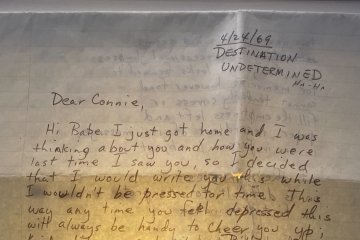 4/24/69
DESTINATION
UNDETERMINED
HA-HA
Dear Connie,
Hi Babe. I just got home and I was
thinking about you and how you were
last time I saw you, so I decided
that I would write you this while
I wouldn't be pressed for time. This
way any time you feel depressed this
will always be handy to cheer you up;